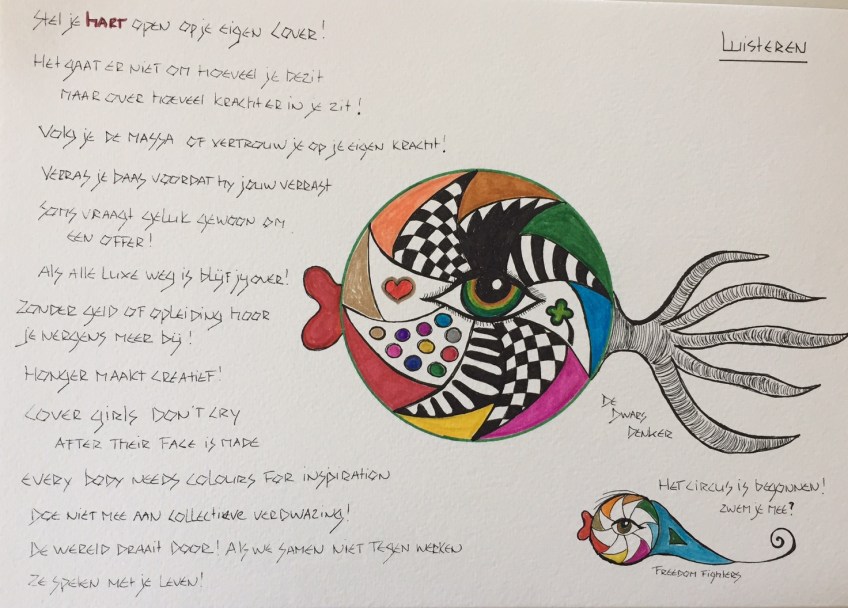 Luisteren
Stel je HART open op je eigen cover!
Het gaat er niet om hoeveel je bezit
maar over hoeveel kracht er in je zit!
Volg je de massa of vertrouw je op je eigen kracht!
Verras je baas voordat hy jouw verrast
Soms vraagt geluk gewoon om
een offer!
Als alle luxe weg is blijf jy over!
Zonder geld of opleiding hoor
je nergens meer bij!
Honger maakt creatief!
Cover girls don't cry
after their face is made
Every body needs colours for inspiration
Doe niet mee aan collectieve verdwazing!
De wereld draait door! Als we samen niet tegen werken
Ze spelen met je leven!
De
Dwars
Denker
Het circus is begonnen!
Zwem je mee?
Freedom Fighters